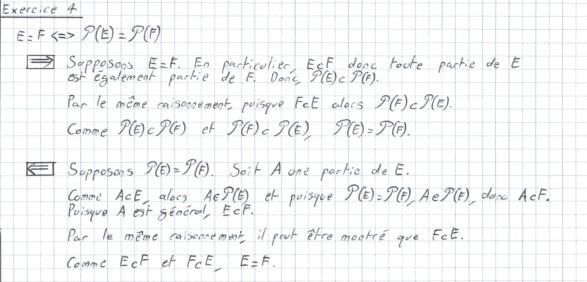 Exercice 4
E = F <=> P(E) = P(F)
=> Supposons E=F. En particulier, E⊂F donc toute partie de E
est également partie de F. Donc, P(E)⊂P(F).
Par le même raisonnement, puisque F⊂E alors P(F)⊂P(E).
Comme P(E)⊂P(F) et P(F)⊂P(E), P(E)=P(F).
<= Supposons P(E)=P(F). Soit A une partie de E.
Comme A⊂E, alors A∈P(E) et puisque P(E)=P(F), A∈P(F), donc A⊂F.
Puisque A est général, E⊂F.
Par le même raisonnement, il peut être montré que F⊂E.
Comme E⊂F et F⊂E, E=F.